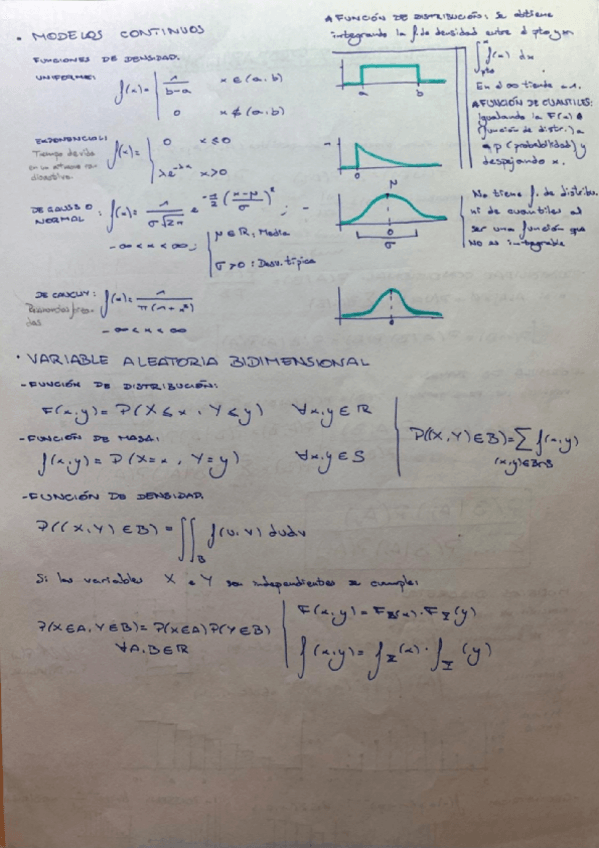 · MODELOS CONTINUOS
FUNCIONES DE DENSIDAD.
UNIFORME: f(x) = 1/(b-a) x ∈ (a, b)
0 x ∉ (a, b)
EXPONENCIAL: f(x) = 0 x ≤ 0
λe^(-λx) x > 0
Tiempo de vida
en un átomo ra-
dioactivo.
DE GAUSS O
NORMAL: f(x) = 1/(σ√2π) e^(-1/2 ((x-μ)/σ)²) ;
-∞ < x < ∞ ; μ ∈ R: Media
σ > 0: Desv. típica
DE CAUCHY: f(x) = 1/(π(1+x²))
-∞ < x < ∞
* FUNCIÓN DE DISTRIBUCIÓN: Se obtiene
integrando la f. de densidad entre el pto y x
∫ f(x) dx
pto
En el ∞ tiende a 1.
* FUNCIÓN DE CUANTILES:
Igualando la F(x)
(función de distr.) a
p (probabilidad) y
despejando x.
a b
0
μ
σ
No tiene f. de distribu.
ni de cuantiles al
ser una función que
NO es integrable
0
· VARIABLE ALEATORIA BIDIMENSIONAL
- FUNCIÓN DE DISTRIBUCIÓN:
F(x,y) = P(X ≤ x, Y ≤ y) ∀x,y ∈ R
- FUNCIÓN DE MASA:
f(x,y) = P(X = x, Y = y) ∀x,y ∈ S
P((X,Y) ∈ B) = ∑ f(x,y)
(x,y) ∈ B∩S
- FUNCIÓN DE DENSIDAD.
P((X,Y) ∈ B) = ∬_B f(u,v) du dv
Si las variables X e Y son independientes se cumple:
P(X∈A, Y∈B) = P(X∈A) P(Y∈B)
∀A,B ∈ R
F(x,y) = F_X(x) · F_Y(y)
f(x,y) = f_X(x) · f_Y(y)